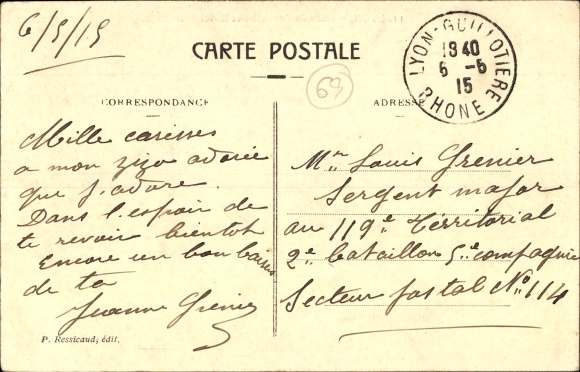 6/5/15
CARTE POSTALE
LYON-GUILLOTIERE
1940
6 -5
15
RHONE
69
CORRESPONDANCE
ADRESSE
Mille caresses
a mon zizo adorée
que j'adore.
Dans l'espoir de
te revoir bientot
Encore un bon baiser
de ta
Jeanne Grenier
Mr Louis Grenier
Sergent major
au 119e Térritorial
2e bataillon 5e compagnie
Secteur postal No 114
P. Ressicaud, édit.